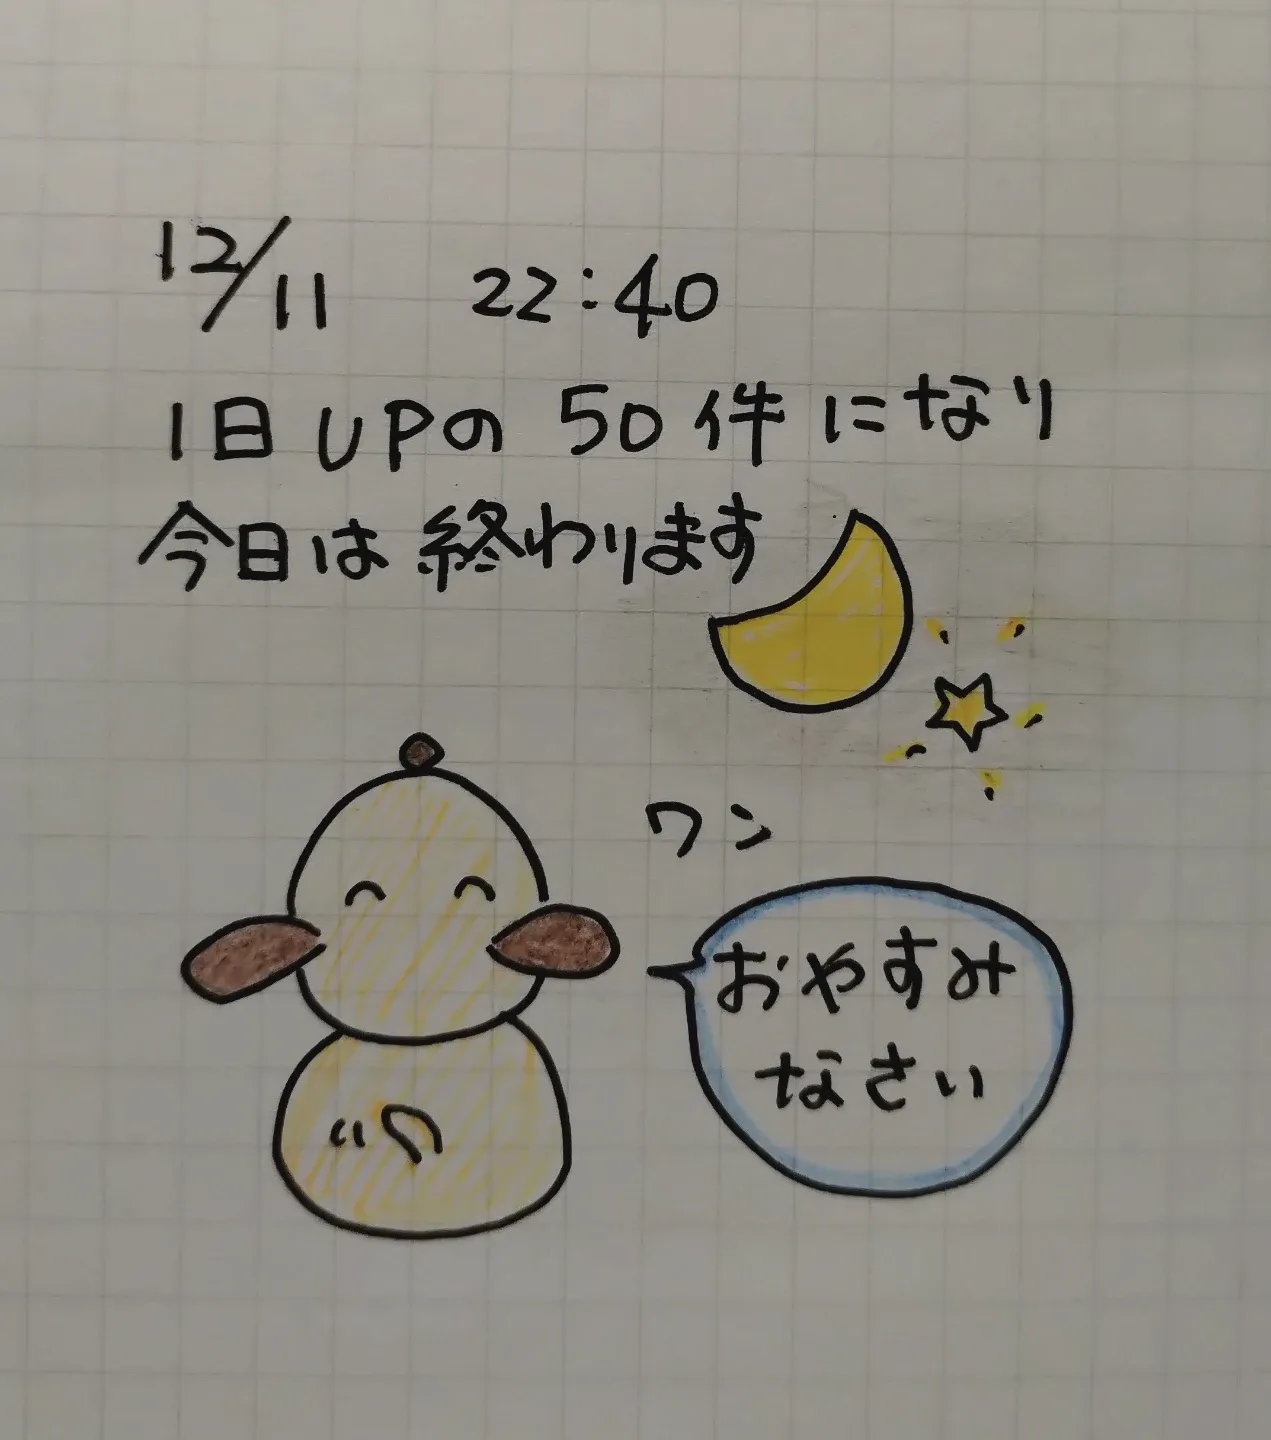 12/11 22:40
1日UPの50件になり
今日は終わります
ワン
おやすみ
なさい